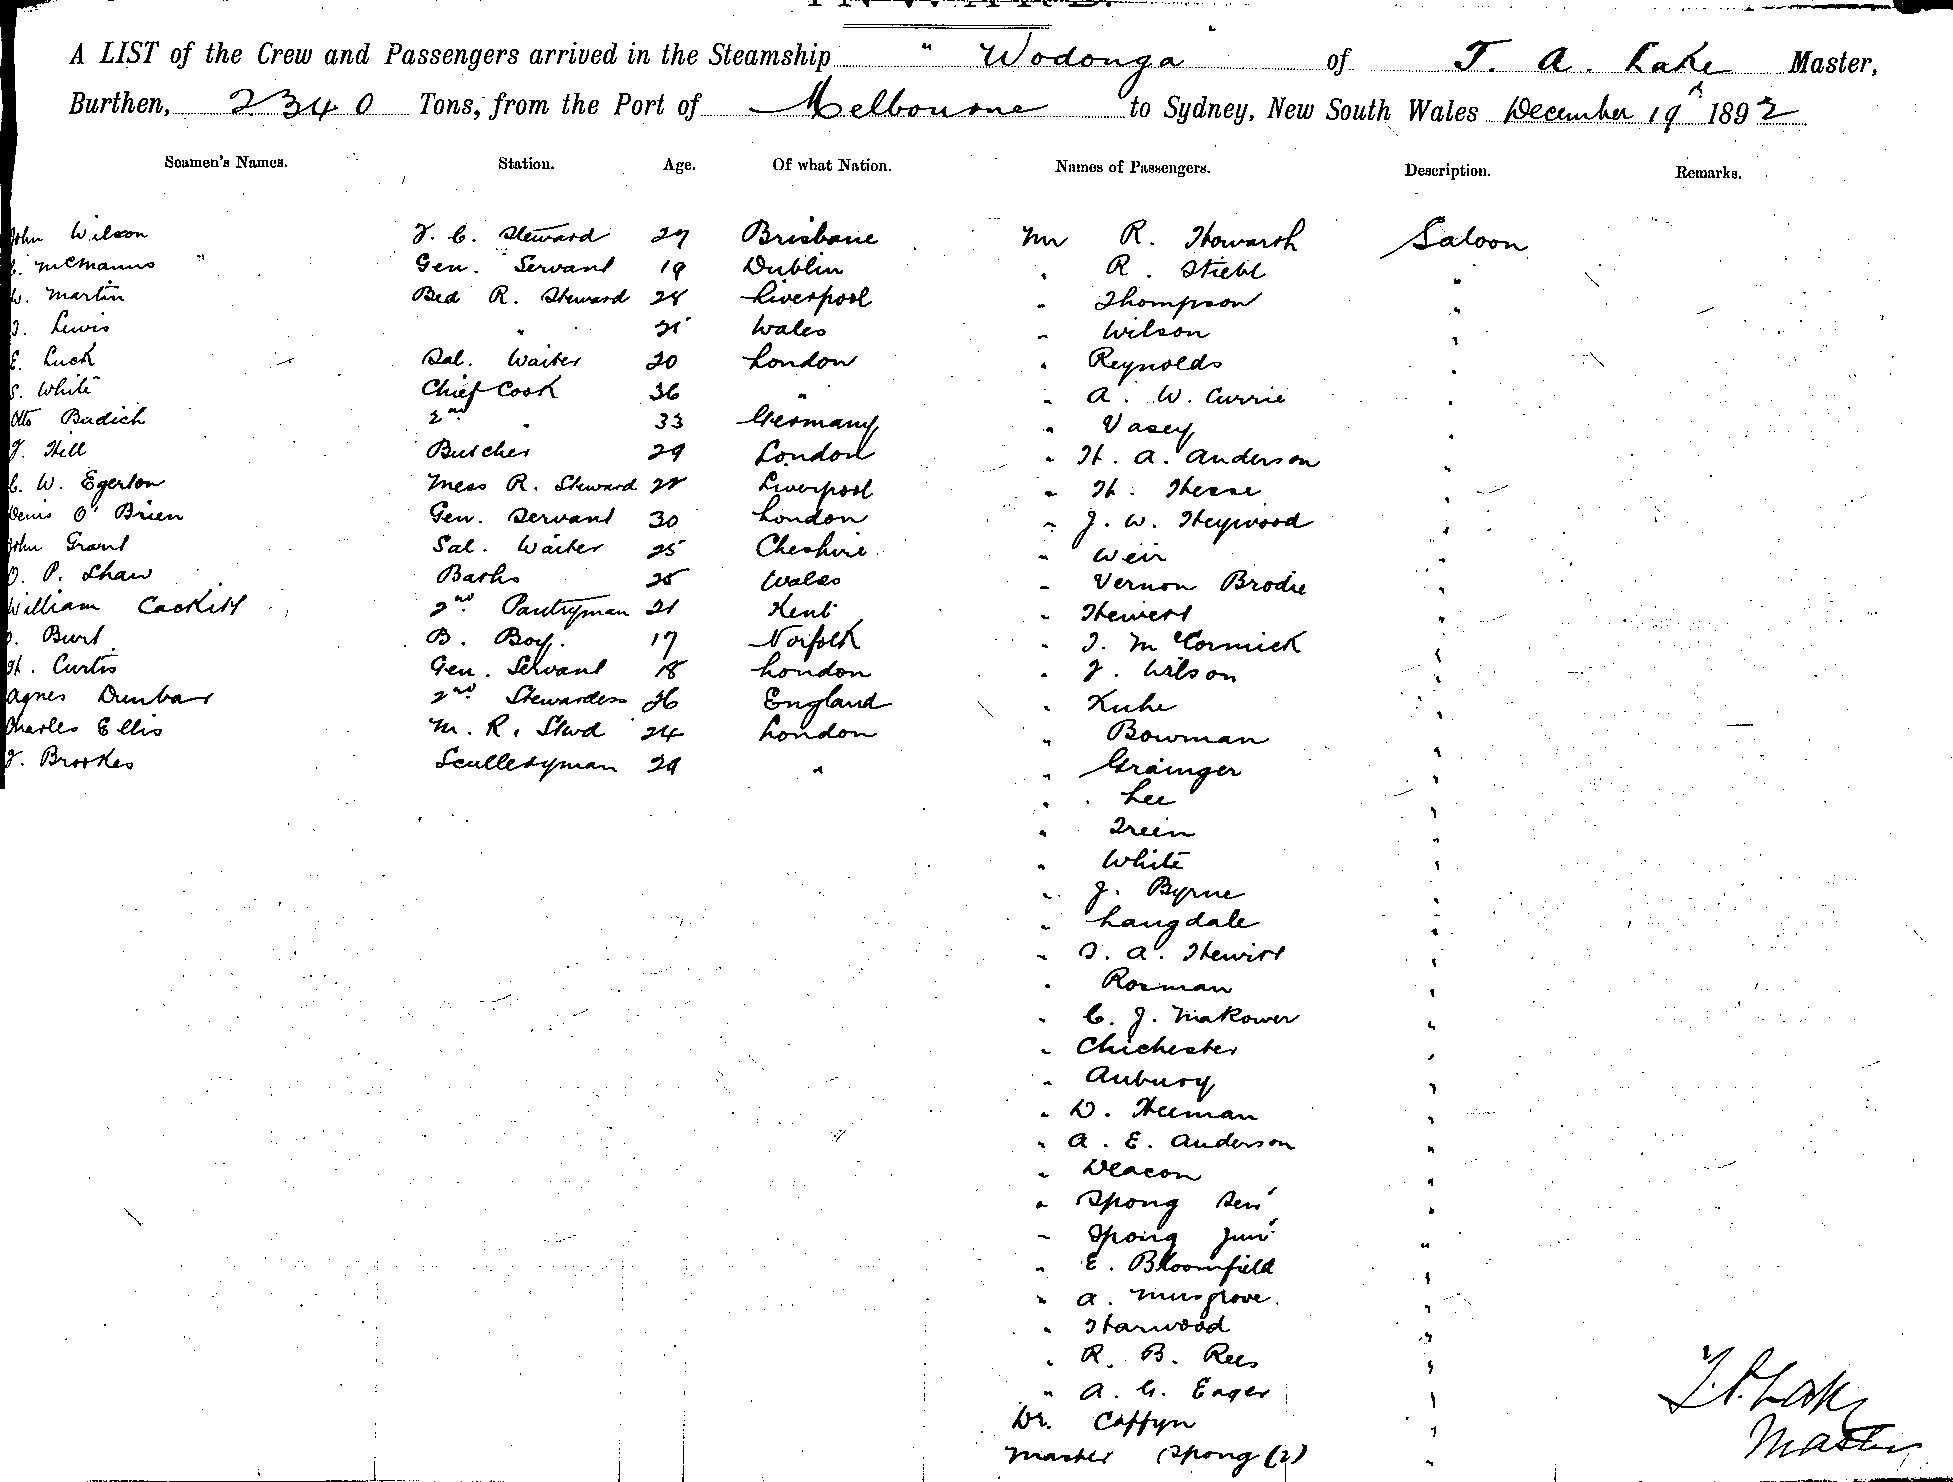 A LIST of the Crew and Passengers arrived in the Steamship " Wodonga " of T. A. Lake Master,
Burthen, 2340 Tons, from the Port of Melbourne to Sydney, New South Wales December 19th 1892
Seamen's Names. Station. Age. Of what Nation. Names of Passengers. Description. Remarks.
John Wilson F. C. Steward 27 Brisbane Mr R. Howarth Saloon
McManus " Gen. Servant 19 Dublin " R. Stiebl "
W. Martin Bed R. Steward 28 Liverpool " Thompson "
Lewis " 21 Wales " Wilson "
E. Luck Sal. Waiter 20 London " Reynolds "
S. White Chief Cook 36 " " A. W. Currie "
Otto Badich 2nd " 33 Germany " Vasey "
J. Hill Butcher 29 London " H. A. Anderson "
C. W. Egerton Mess R. Steward 22 Liverpool " H. Hesse "
Denis O'Brien Gen. Servant 30 London " J. W. Heywood "
John Grant Sal. Waiter 25 Cheshire " Weir "
P. Shaw Baths 25 Wales " Vernon Brodie "
William Caskill 2nd Pantryman 21 Kent " Hewett "
Burt B. Boy. 17 Norfolk " T. McCormick "
H. Curtis Gen. Servant 18 London " J. Wilson "
Agnes Dunbar 2nd Stewardess 36 England " Kuhe "
Charles Ellis M. R. Stwd 24 London " Bowman "
J. Brookes Sculleryman 29 " " Grainger "
" Lee "
" Treen "
" White "
" J. Byrne "
" Langdale "
" T. A. Hewitt "
" Rosman "
" C. J. Makower "
" Chichester "
" Aubury "
" D. Heeman "
" A. E. Anderson "
" Deacon "
" Spong Senr "
" Spong Junr "
" E. Bloomfield "
" A. Musgrove. "
" Harwood "
" R. B. Rees "
" A. G. Eager "
Dr. Coffyn "
Master Spong (2) "
T. A. Lake
Master